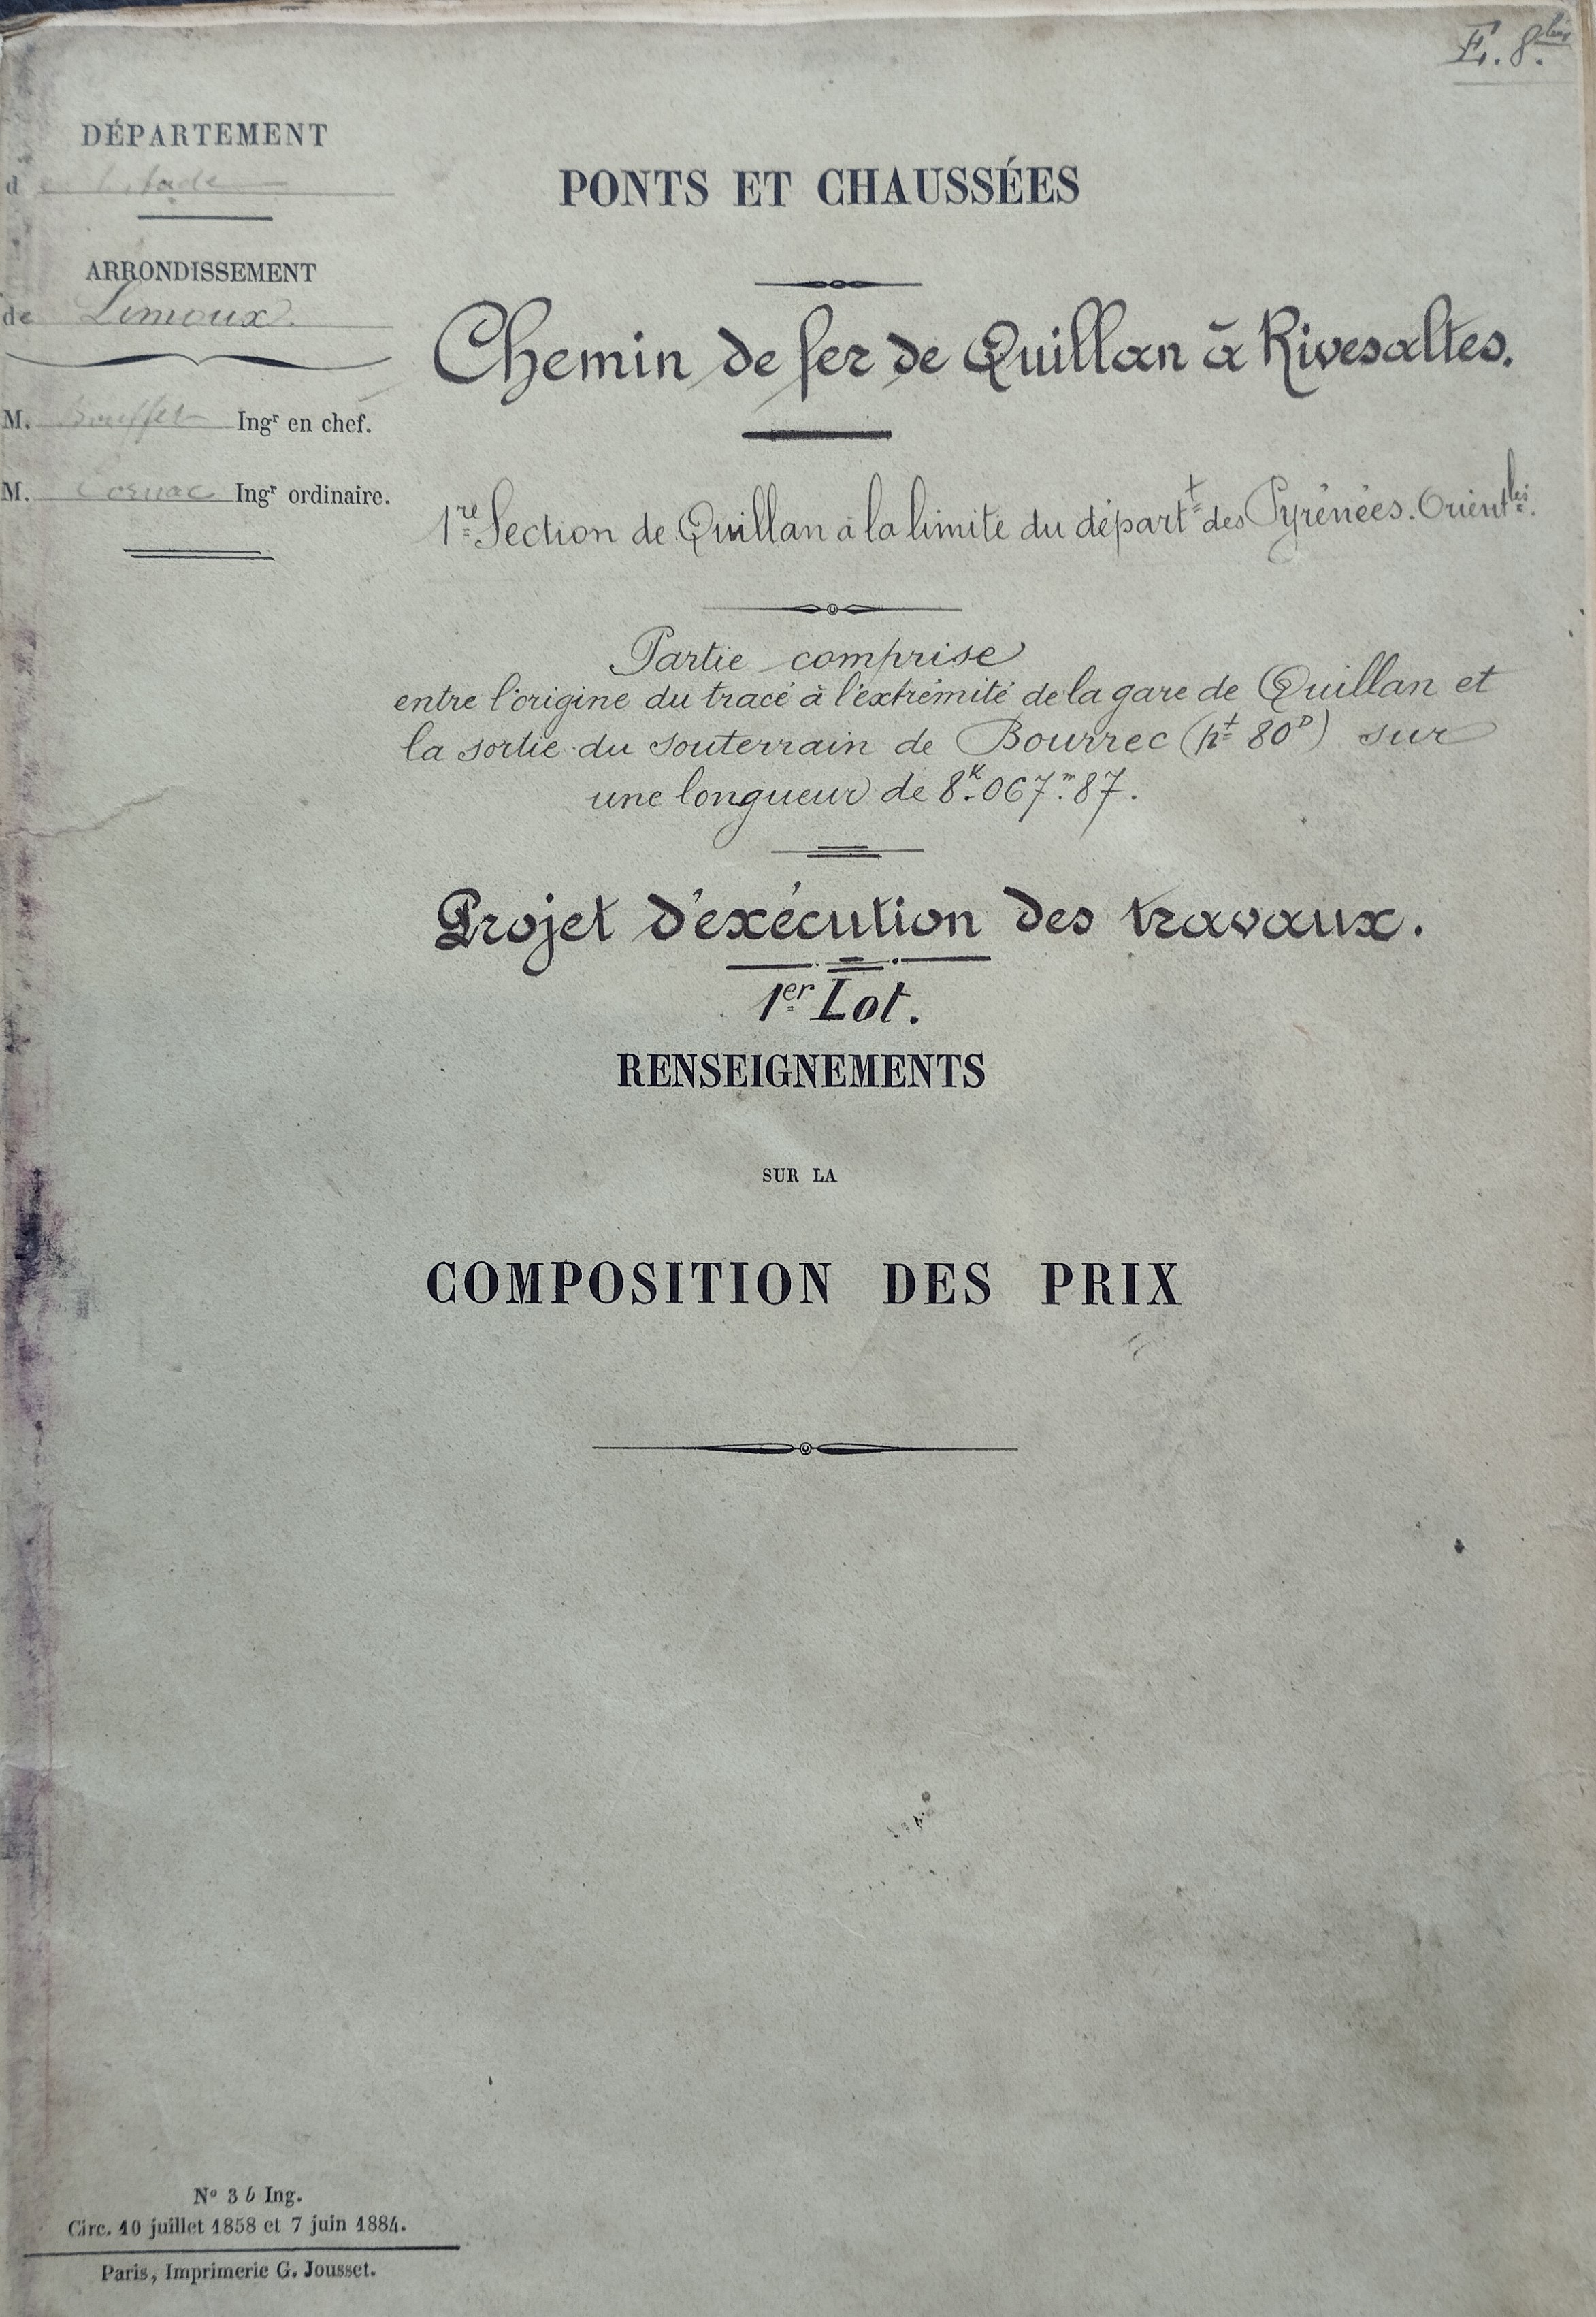 E. 8.bis
DÉPARTEMENT
de l'Aude
ARRONDISSEMENT
de Limoux.
M. Bouffet Ingr en chef.
M. Ingr ordinaire.
PONTS ET CHAUSSÉES
Chemin de fer de Quillan à Rivesaltes.
1re Section de Quillan à la limite du départt des Pyrénées.Orientles.
Partie comprise
entre l'origine du tracé à l'extrémité de la gare de Quillan et
la sortie du souterrain de Bourrec (pt 80D) sur
une longueur de 8K.067m.87.
Projet d'exécution des travaux.
1er Lot.
RENSEIGNEMENTS
SUR LA
COMPOSITION DES PRIX
No 3 b Ing.
Circ. 10 juillet 1858 et 7 juin 1884.
Paris, Imprimerie G. Jousset.